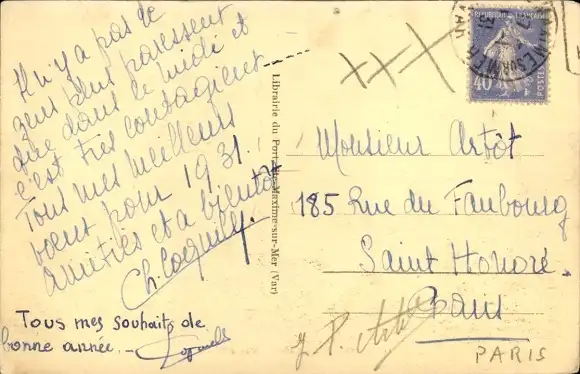 Il n'y a pas de
gens plus paressent
que dans le midi et
c'est très contagieux
Tous mes meilleurs
vœux pour 1931.
Amitiés et a bientôt
Ch. Coquilly.
Tous mes souhaits de
bonne année. -
Librairie du Port Ste-Maxime-sur-Mer (Var)
REPUBLIQUE FRANÇAISE
40
POSTES
Monsieur Artôt
185 Rue du Faubourg
Saint Honoré.
Paris
PARIS